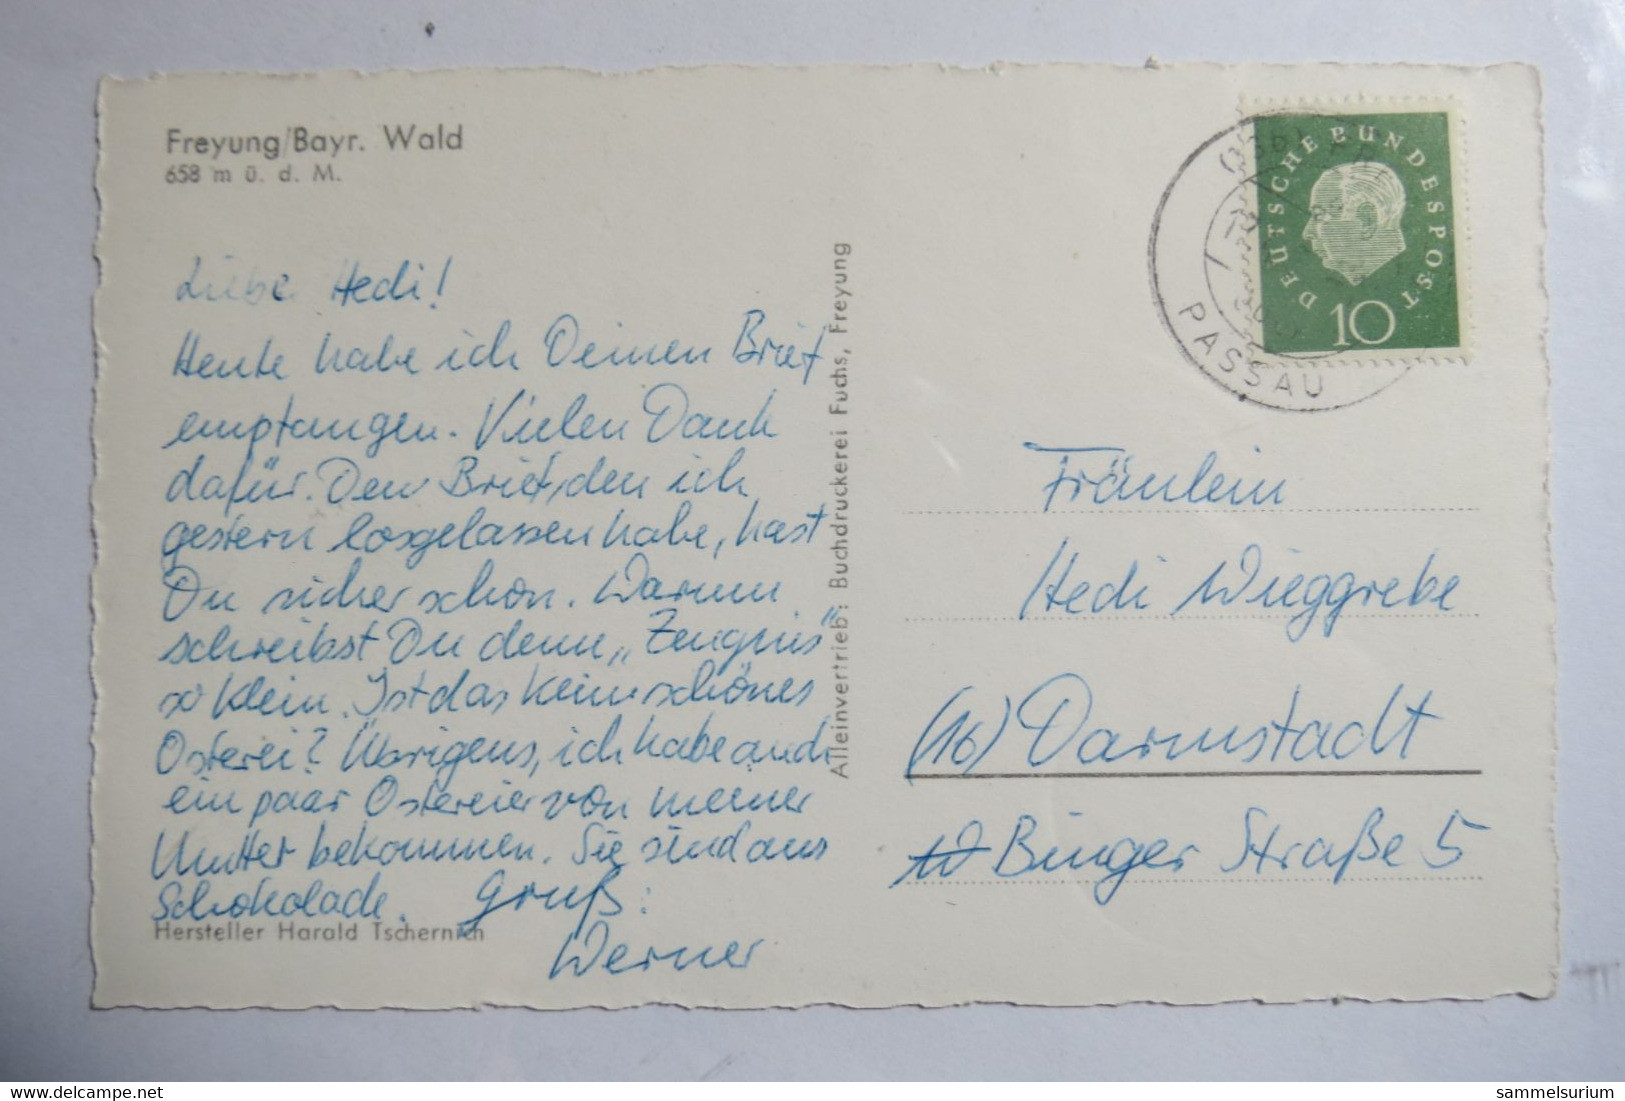 Freyung/Bayr. Wald
658 m ü. d. M.
Liebe Hedi!
Heute habe ich Deinen Brief
empfangen. Vielen Dank
dafür. Den Brief, den ich
gestern losgelassen habe, hast
Du sicher schon. Warum
schreibst Du denn „Zeugnis“
so klein. Ist das kein schönes
Osterei? Übrigens, ich habe auch
ein paar Ostereier von meiner
Mutter bekommen. Sie sind aus
Schokolade. Gruß:
Werner
Hersteller Harald Tschernich
Alleinvertrieb: Buchdruckerei Fuchs, Freyung
DEUTSCHE BUNDESPOST
10
PASSAU
Fräulein
Hedi Wieggrebe
(16) Darmstadt
Binger Straße 5
www.delcampe.net
sammelsurium